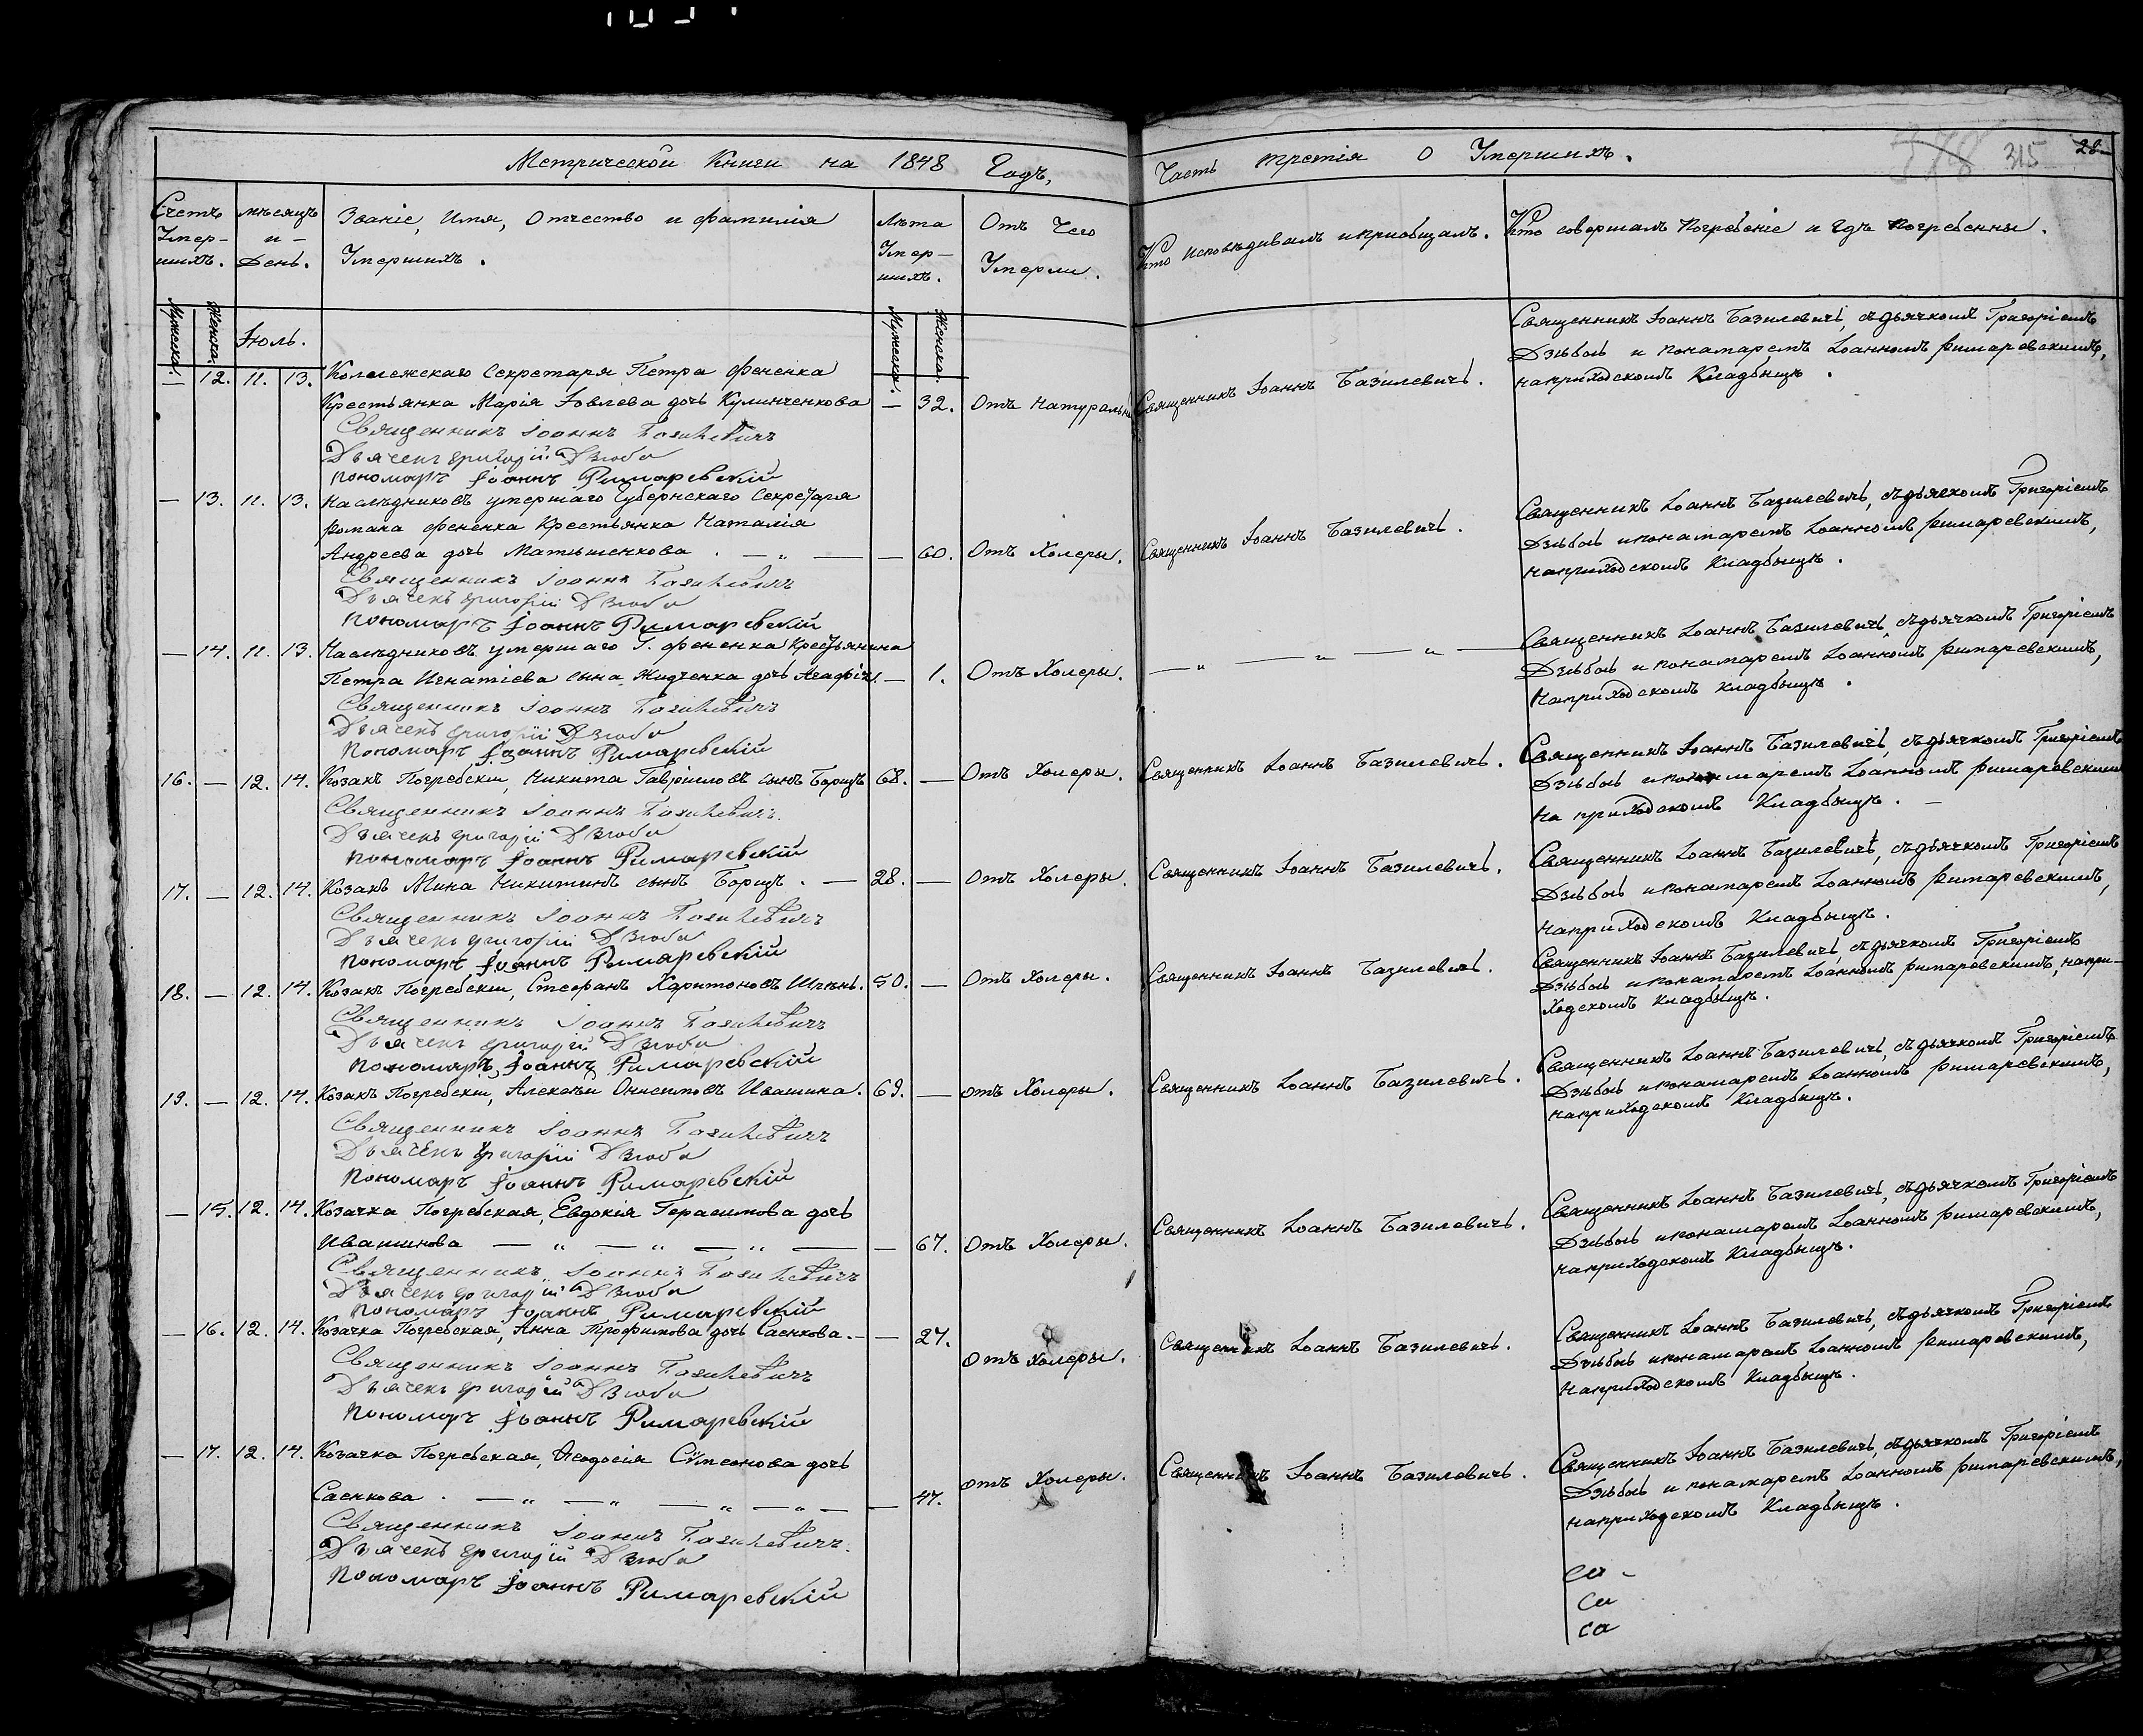 Метрической Книги на 1848 Годъ,
Часть третія о Умершихъ.
315
28
Счетъ Умер-шихъ.
мѣсяцъ и День.
Званіе, Имя, Отчество и фамилія Умершихъ.
Лѣта Умер-шихъ.
Отъ Чего Умерли.
Кто исповѣдивалъ и приобщалъ.
Кто совершалъ погребеніе и гдѣ погребенны.
Мужеска.
Женска.
Іюль.
Мужеска.
Женска.
— 12. 11. 13. Колежскаго Секретаря Петра Фененка
Крестьянка Марія Іовлева дочь Кулинченкова — 32. Отъ Натуральн Священникъ Іоаннъ Базилевичъ.
Священникъ Іоаннъ Базилевичъ, съ дьячкомъ Григоріемъ
Дзюбою и понамаремъ Іоанномъ Римаревскимъ,
на приходскомъ Кладбищѣ.
Священникъ Іоаннъ Базилевичъ
Дьячекъ Григорій Дзюба
Пономарь Іоаннъ Римаревскій
— 13. 11. 13. Наслѣдниковъ умершаго Губернскаго Секретаря
Романа Фененка Крестьянка Наталія
Андреева дочь Матюшенкова. — 60. Отъ Холеры. Священникъ Іоаннъ Базилевичъ.
Священникъ Іоаннъ Базилевичъ, съ дьячкомъ Григоріемъ
Дзюбою и понамаремъ Іоанномъ Римаревскимъ,
на приходскомъ Кладбищѣ.
Священникъ Іоаннъ Базилевичъ
Дьячекъ Григорій Дзюба
Пономарь Іоаннъ Римаревскій
— 14. 11. 13. Наслѣдниковъ умершаго Г. Фененка Крестьянина
Петра Игнатіева сына Жидченка дочь Агафія. — 1. Отъ Холеры. — „ — „ — „ —
Священникъ Іоаннъ Базилевичъ, съ дьячкомъ Григоріемъ
Дзюбою и понамаремъ Іоанномъ Римаревскимъ,
на приходскомъ кладбищѣ.
Священникъ Іоаннъ Базилевичъ
Дьячекъ Григорій Дзюба
Пономарь Іоаннъ Римаревскій
16. — 12. 14. Козакъ Погребскій, Никита Гавріиловъ сынъ Борщъ 68. — Отъ Холеры. Священникъ Іоаннъ Базилевичъ.
Священникъ Іоаннъ Базилевичъ, съ дьячкомъ Григоріемъ
Дзюбою и понамаремъ Іоанномъ Римаревскимъ
на приходскомъ Кладбищѣ. —
Священникъ Іоаннъ Базилевичъ
Дьячекъ Григорій Дзюба
Пономарь Іоаннъ Римаревскій
17. — 12. 14. Козакъ Мина Никитинъ сынъ Борщъ. — 28. — Отъ Холеры. Священникъ Іоаннъ Базилевичъ.
Священникъ Іоаннъ Базилевичъ, съ дьячкомъ Григоріемъ
Дзюбою и понамаремъ Іоанномъ Римаревскимъ,
на приходскомъ Кладбищѣ.
Священникъ Іоаннъ Базилевичъ
Дьячекъ Григорій Дзюба
Пономарь Іоаннъ Римаревскій
18. — 12. 14. Козакъ Погребскій, Стефанъ Харитоновъ 50. — Отъ Холеры. Священникъ Іоаннъ Базилевичъ.
Священникъ Іоаннъ Базилевичъ, съ дьячкомъ Григоріемъ
Дзюбою и понамаремъ Іоанномъ Римаревскимъ, на при-
ходскомъ кладбищѣ.
Священникъ Іоаннъ Базилевичъ
Дьячекъ Григорій Дзюба
Пономарь Іоаннъ Римаревскій
19. — 12. 14. Козакъ Погребскій, Алексѣй Онисимовъ Ивашина. 69. — отъ Холеры. Священникъ Іоаннъ Базилевичъ.
Священникъ Іоаннъ Базилевичъ, съ дьячкомъ Григоріемъ
Дзюбою и понамаремъ Іоанномъ Римаревскимъ,
на приходскомъ Кладбищѣ.
Священникъ Іоаннъ Базилевичъ
Дьячекъ Григорій Дзюба
Пономарь Іоаннъ Римаревскій
— 15. 12. 14. Козачка Погребская, Евдокія Герасимова дочь
Ивашинова — „ — „ — „ — — 67. Отъ Холеры. Священникъ Іоаннъ Базилевичъ.
Священникъ Іоаннъ Базилевичъ, съ дьячкомъ Григоріемъ
Дзюбою и понамаремъ Іоанномъ Римаревскимъ,
на приходскомъ Кладбищѣ.
Священникъ Іоаннъ Базилевичъ
Дьячекъ Григорій Дзюба
Пономарь Іоаннъ Римаревскій
— 16. 12. 14. Козачка Погребская, Анна Трофимова дочь Саенкова. — — 27. Отъ Холеры. Священникъ Іоаннъ Базилевичъ.
Священникъ Іоаннъ Базилевичъ, съ дьячкомъ Григоріемъ
Дзюбою и понамаремъ Іоанномъ Римаревскимъ,
на приходскомъ Кладбищѣ.
Священникъ Іоаннъ Базилевичъ
Дьячекъ Григорій Дзюба
Пономарь Іоаннъ Римаревскій
— 17. 12. 14. Козачка Погребская, Феодосія Сѵмеонова дочь
Саенкова. — „ — „ — „ — „ — — 47. отъ Холеры. Священникъ Іоаннъ Базилевичъ.
Священникъ Іоаннъ Базилевичъ, съ дьячкомъ Григоріемъ
Дзюбою и понамаремъ Іоанномъ Римаревскимъ,
на приходскомъ Кладбищѣ.
Священникъ Іоаннъ Базилевичъ.
Дьячекъ Григорій Дзюба
Пономарь Іоаннъ Римаревскій